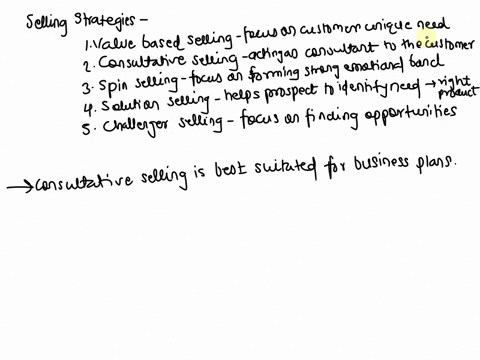 Selling Strategies -
1. Value based selling - focus on customer unique need
2. Consultative selling - acting as consultant to the customer
3. Spin selling - focus on forming strong emotional bond
4. Solution selling - helps prospect to identify need → right product
5. Challenger selling - focus on finding opportunities
→ Consultative selling is best suitated for business plans.